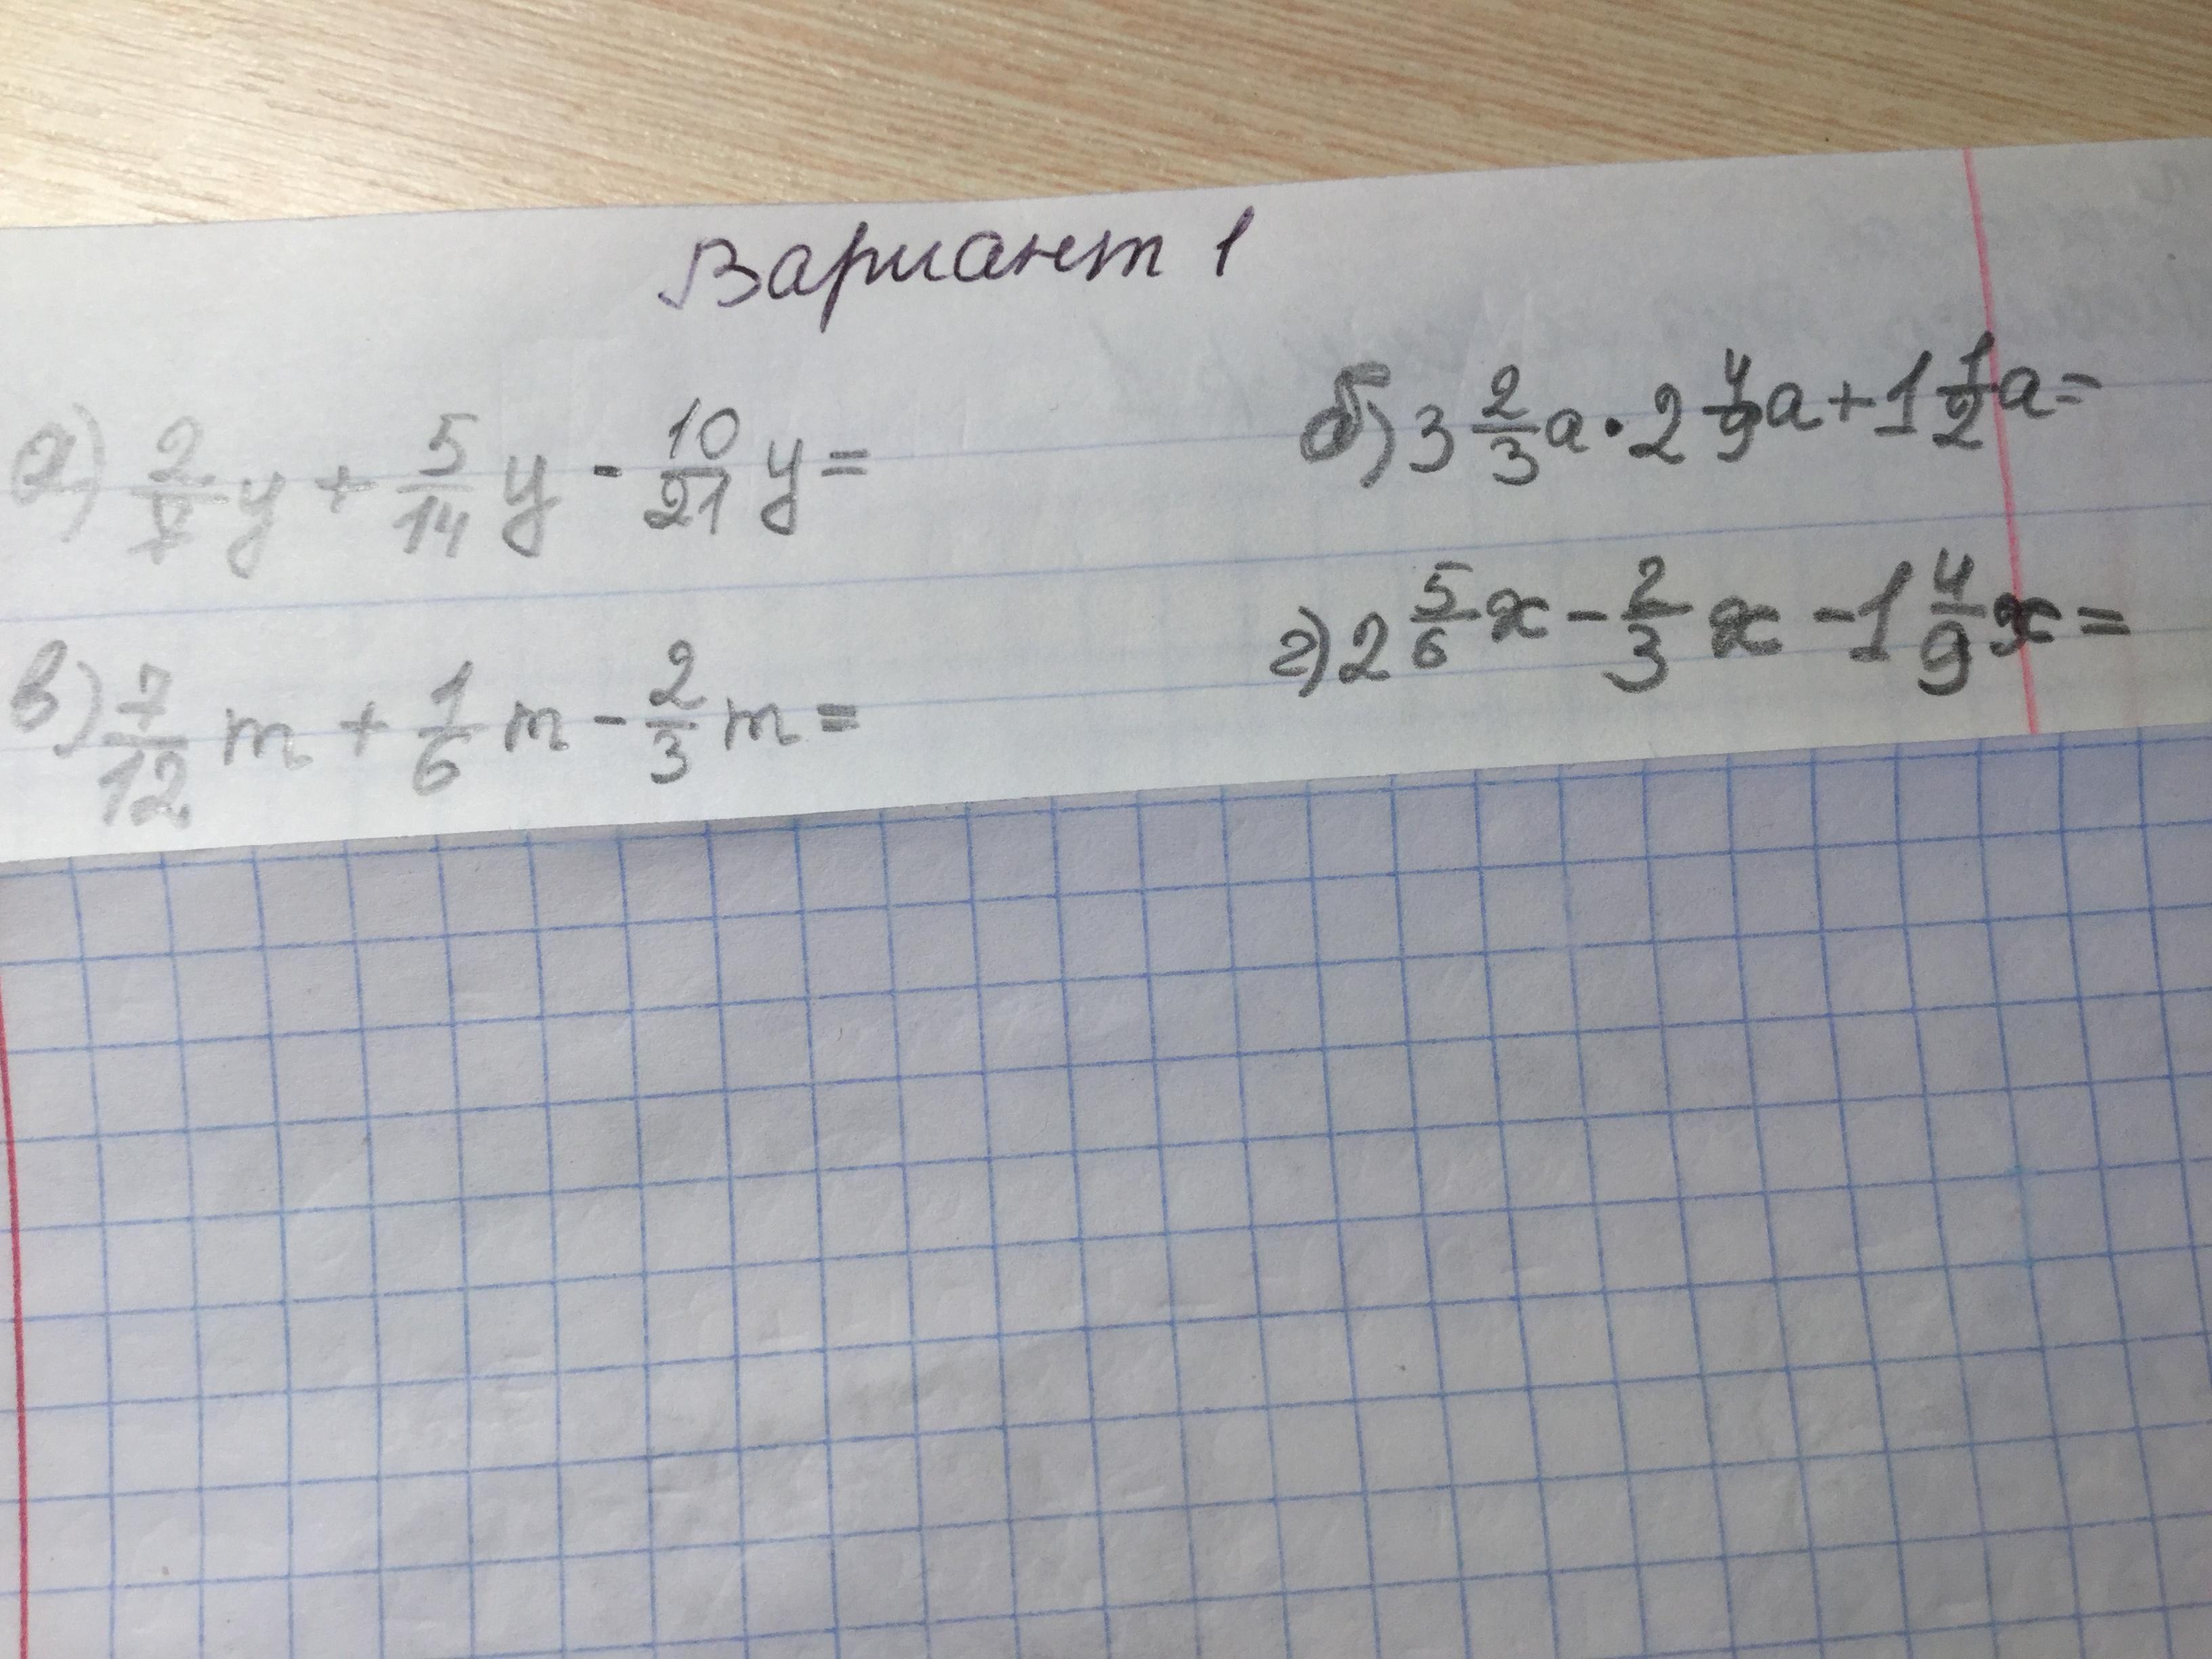 Вариант 1
а) 2/7 y + 5/14 y - 10/21 y =
б) 3 2/3 a · 2 4/9 a + 1 1/2 a =
в) 7/12 m + 1/6 m - 2/3 m =
г) 2 5/6 x - 2/3 x - 1 4/9 x =